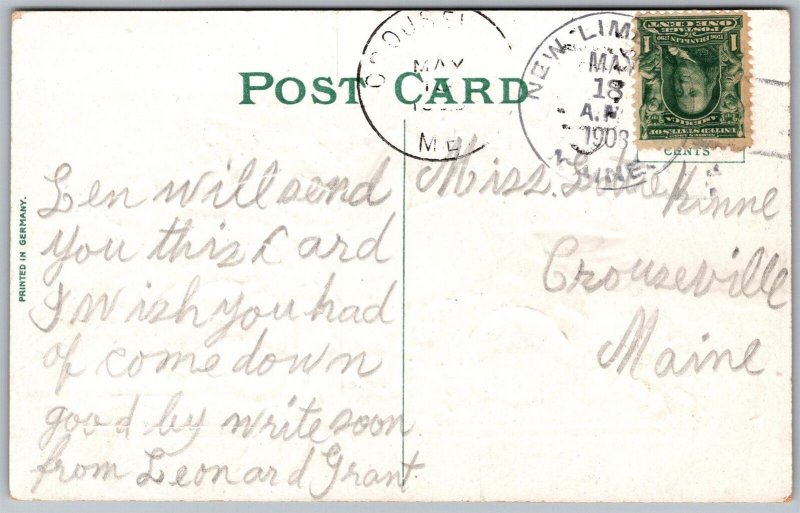 POST CARD
PRINTED IN GERMANY.
ME.
NEW LIM
MAY
18
A.M
1908
MAINE
1
UNITED STATES OF
AMERICA
FRANKLIN
POSTAGE
ONE CENT
1
CENTS
Len will send
you this Card
I Wish you had
of come down
good by write soon
from Leonard Grant
Miss. Kinne
Crouseville
Maine.